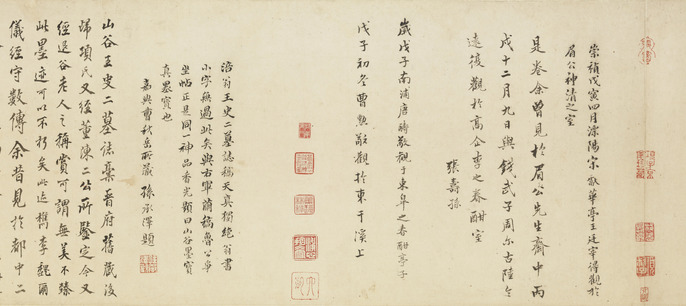 崇禎戊寅四月溧陽宋獻華亭王廷宰得觀於
眉公神清之室
是卷余曾見於眉公先生齋中丙
戌十二月九日與錢武子周尔古陸
遠後觀於高企李之春酣室
張壽孫
歲戊子南浦唐 敬觀于東皋之春酣亭子
戊子初冬曹勲敬觀於東干溪上
涪翁王史二墓誌稿天真獨絶翁書
小字無過此矣與右軍 稿魯公争
坐帖正是同一神品香光題曰山谷墨寶
真墨寶也
嘉興曹秋岳所藏 孫承澤題
山谷王史二墓誌藁晉府舊藏後
歸項氏又後董陳二公所鑒定今又
經退谷老人之稱賞可謂無美不臻
此墨迹可以不朽矣此迹檇李魏爾
儀經守數傳余昔見於都中二